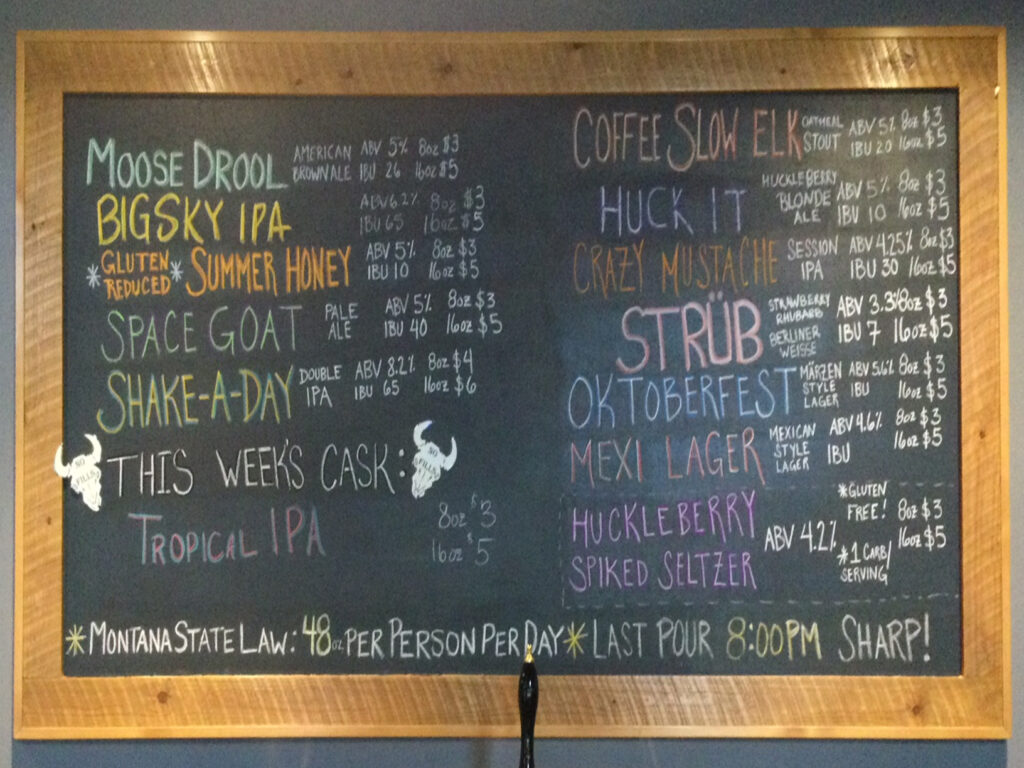 MOOSE DROOL AMERICAN BROWN ALE ABV 5% 8oz $3
IBU 26 16oz $5
BIG SKY IPA ABV 6.2% 8oz $3
IBU 65 16oz $5
*GLUTEN REDUCED* SUMMER HONEY ABV 5% 8oz $3
IBU 10 16oz $5
SPACE GOAT PALE ALE ABV 5% 8oz $3
IBU 40 16oz $5
SHAKE-A-DAY DOUBLE IPA ABV 8.2% 8oz $4
IBU 65 16oz $6
THIS WEEK'S CASK:
NO
FILLS
NO
FILLS
TROPICAL IPA 8oz $3
16oz $5
COFFEE SLOW ELK OATMEAL STOUT ABV 5% 8oz $3
IBU 20 16oz $5
HUCK IT HUCKLEBERRY BLONDE ALE ABV 5% 8oz $3
IBU 10 16oz $5
CRAZY MUSTACHE SESSION IPA ABV 4.25% 8oz $3
IBU 30 16oz $5
STRÜB STRAWBERRY RHUBARB BERLINER WEISSE ABV 3.3% 8oz $3
IBU 7 16oz $5
OKTOBERFEST MÄRZEN STYLE LAGER ABV 5.6% 8oz $3
IBU 16oz $5
MEXI LAGER MEXICAN STYLE LAGER ABV 4.6% 8oz $3
IBU 16oz $5
HUCKLEBERRY
SPIKED SELTZER
ABV 4.2%
*GLUTEN
FREE!
*1 CARB/
SERVING
8oz $3
16oz $5
*MONTANA STATE LAW: 48oz PER PERSON PER DAY* LAST POUR 8:00PM SHARP!